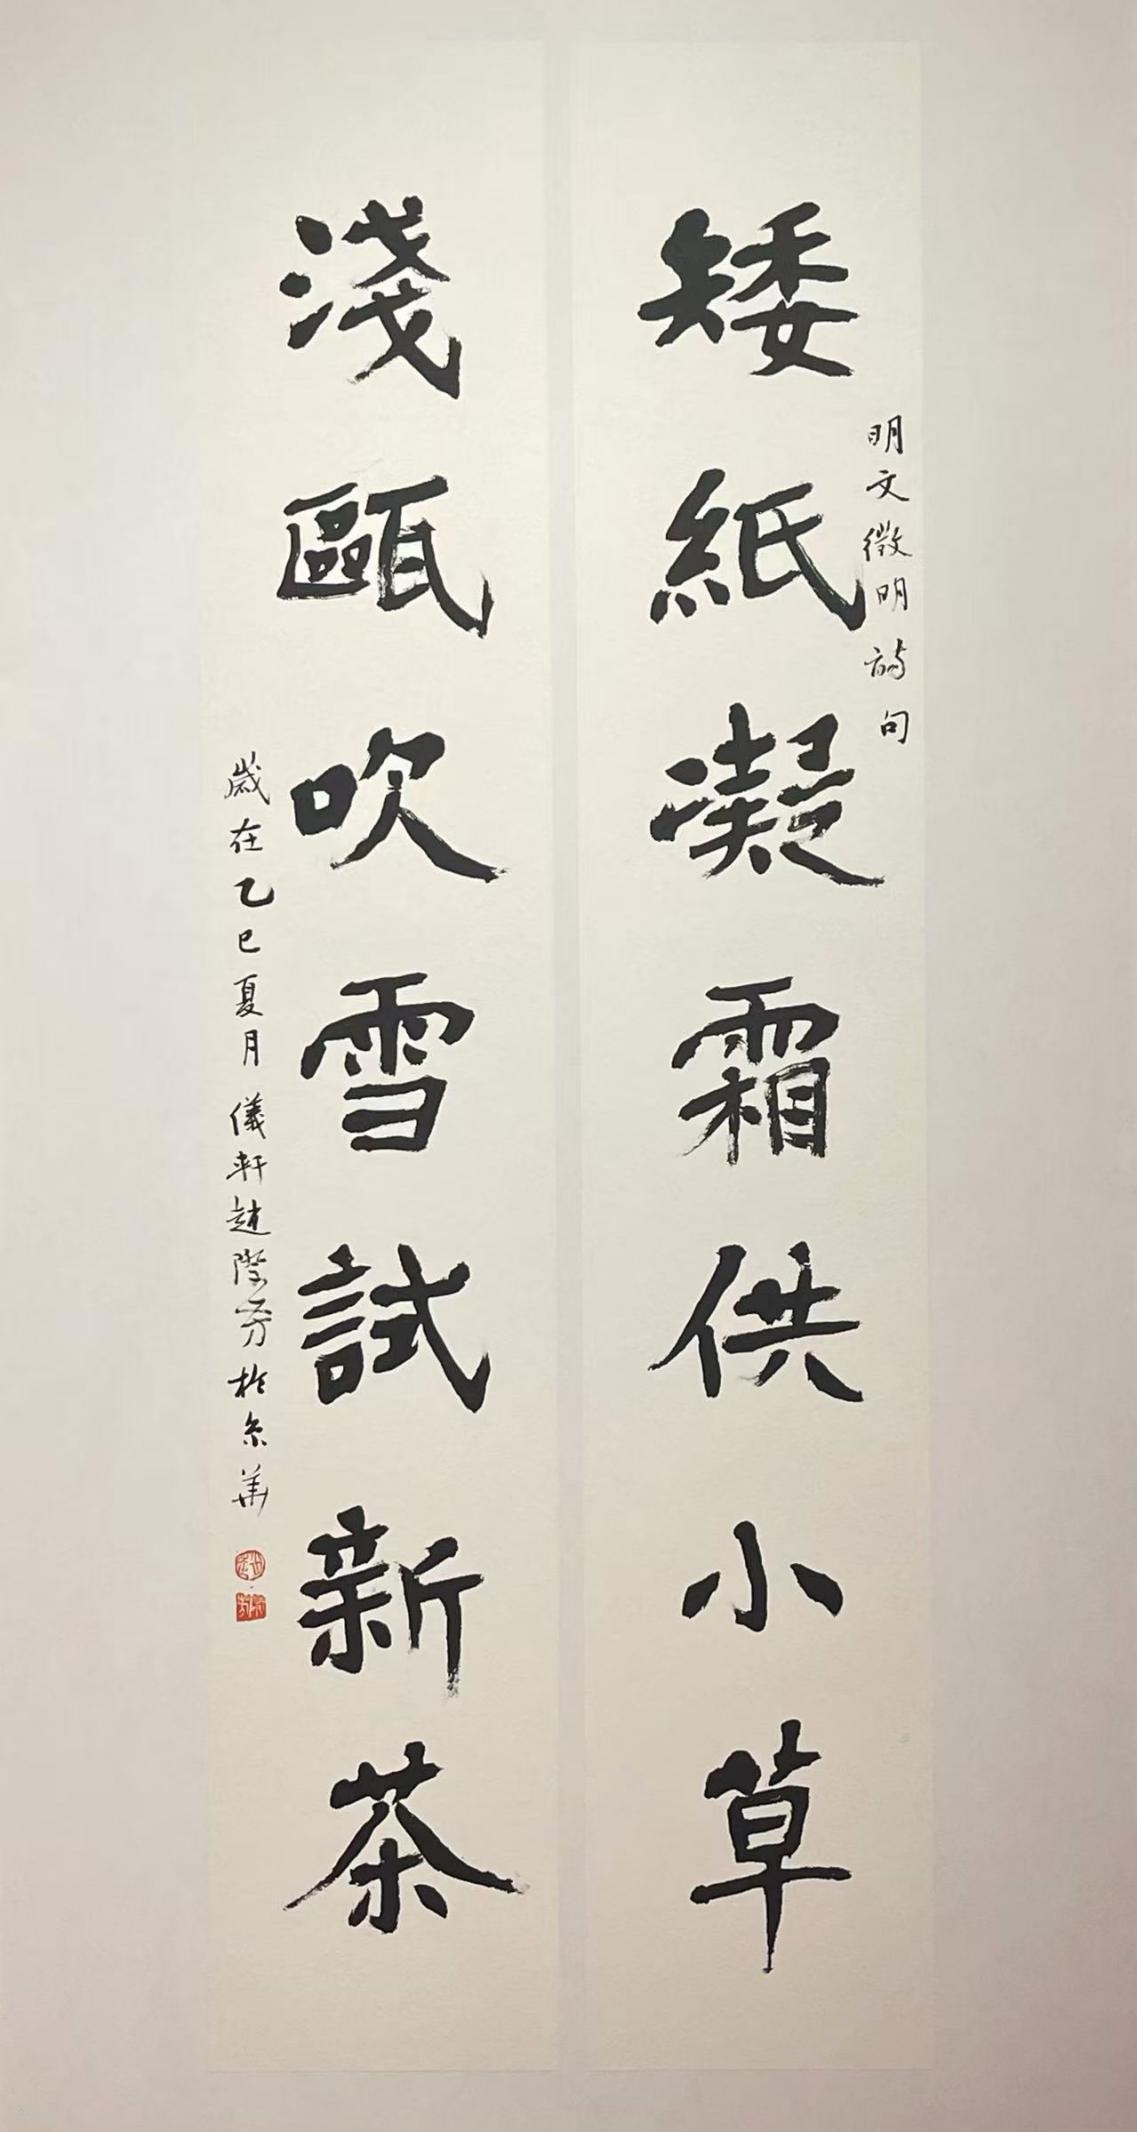 矮紙凝霜供小草
明文徵明詩句
淺甌吹雪試新茶
歲在乙巳夏月儀軒趙際芳於京華